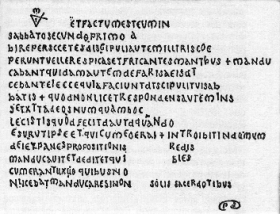 ETFACTUMESTEUMIN
SABBATOSECUNDOPRIMO A
BIREPERSCCETESDISGIPULIAUTEMILLIRISCOE
PERUNTVELLERESPICASETFRICANTESMANTIBUS + MANDU
CABANTQUIDAMAUTEMDEFARISAEISDT
CEBANTEIECCEQUIAFACIUNTDISCIPULITUISAB
BATIS + QUODNONLICETRESPONDENSAUTEMINS
SETXTTADEOSNUMQUAMBOC
LECISTISQUODFECITDAUTDQUANDO
ESURUTIPSEETQUICUMEOERAT + INTROIBITINDOMUM
DEIETPANESPROPOSITIONIS REDIS
MANDUCAUITETDEDITETQUI BLES
CUMERANTUXUOQUIBUSNO
NLICEBATMANDUCARESINON SOLIS SACERDOTIBUS